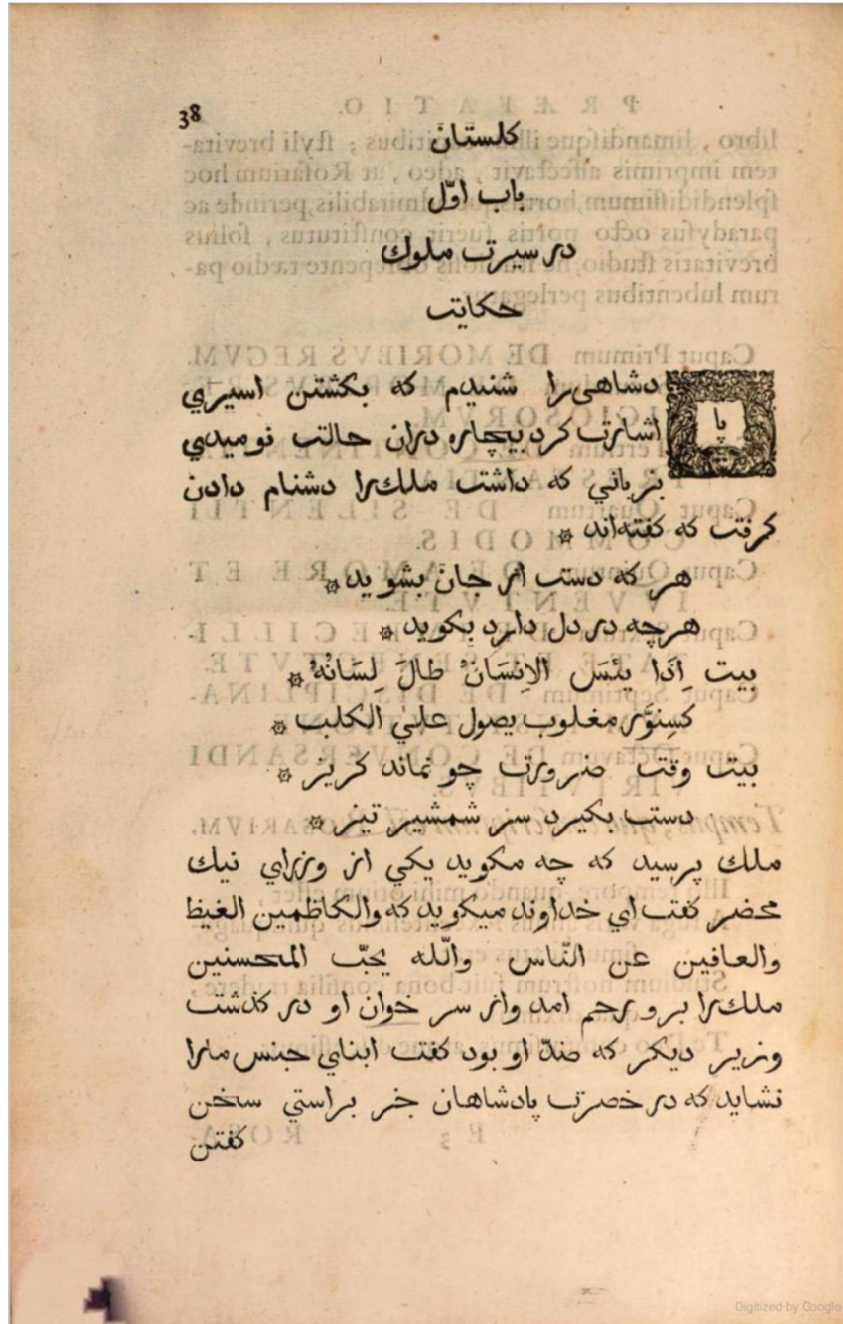 38
كلستان
باب اوّل
در سیرت ملوك
حكایت
پا دشاهی را شنیدم كه بكشتن اسیري
اشارت كرد بیچاره دران حالت نومیدي
بزباني كه داشت ملك را دشنام دادن
كرفت كه كفته‌اند *
هر كه دست از جان بشوید *
هرچه در دل دارد بكوید *
بیت اِذَا یئَسَ الاِنسَانُ طالَ لِسَانُهُ *
كسِنوَّر مغلوب یصول علیٰ الكلب *
بیت وقت ضرورت چو نماند كریز *
دست بكیرد سر شمشیر تیز *
ملك پرسید كه چه مكوید یكي از وزراي نیك
محضر كفت اي خداوند میكوید كه والكاظمین الغیظ
والعافین عن النّاس واللّه یحبّ المحسنین
ملك را برو رحم امد واز سر خوان او در كذشت
وزیر دیكر كه ضدّ او بود كفت ابناي جنس مارا
نشاید كه در خصرت پادشاهان جز براستي سخن
كفتن
Digitized by Google